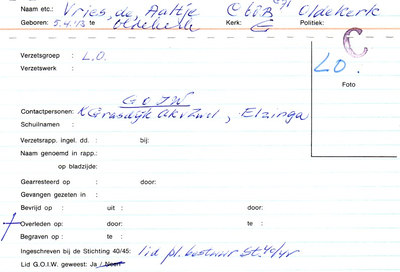 Naam etc.: Vries, de, Aaltje Oldekerk
Geboren: 5.4.13 te Kerk: G Politiek:
C
Verzetsgroep : L.O.
Verzetswerk :
LO.
Foto
G O I W
Contactpersonen: K Grasdijk , Elzinga
Schuilnaam :
Verzetsrapp. ingel. dd. : bij:
Naam genoemd in rapp.:
op bladzijde:
Gearresteerd op : door:
Gevangen gezeten in :
Bevrijd op : uit : door:
Overleden op: door: te :
Begraven op : te :
Ingeschreven bij de Stichting 40/45: lid pl. bestuur St. 40/45
Lid G.O.I.W. geweest: Ja / Neen